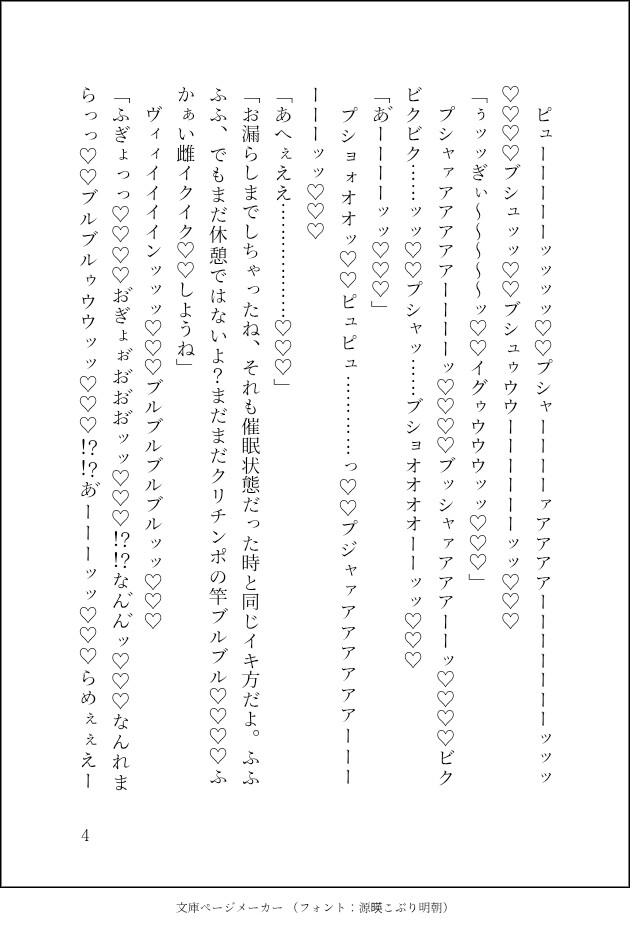 ピューーーーーッッッッ♡♡プシャーーーーァアアアアーーーーーーーッッッ
♡♡♡♡ブシュッッ♡♡ブシュゥウウーーーーーーッッ♡♡♡
「ぅッッぎぃ〜〜〜〜〜ッ♡♡イグゥウウウッッ♡♡♡」
プシャァアアアアアーーーーッ♡♡♡♡ブッシャァアアアーーッ♡♡♡♡ビク
ビクビク……ッッ♡♡プシャッ……ブショオオオオーーッッ♡♡♡
「あ゛ーーーーッッ♡♡♡」
プショォオオッ♡♡ピュピュ…………っ♡♡プジャァアアアアアアーーー
ーーーッッ♡♡♡
「あへぇええ………………♡♡♡」
「お漏らしまでしちゃったね、それも催眠状態だった時と同じイキ方だよ。ふふ
ふふ、でもまだ休憩ではないよ？まだまだクリチンポの竿ブルブル♡♡♡♡ふ
かぁい雌イクイク♡♡しようね」
ヴィィイイイインッッッ♡♡♡ブルブルブルブルッッ♡♡♡
「ふぎょっっ♡♡♡♡お゛ぎょぉ゛お゛お゛お゛ッッ♡♡♡!?!?なん゛ん゛ッ♡♡♡なんれま
らっっ♡♡ブルブルゥウウッッ♡♡♡!?!?あ゛ーーーッッ♡♡♡らめぇぇえー
4
文庫ページメーカー（フォント：源暎こぶり明朝）